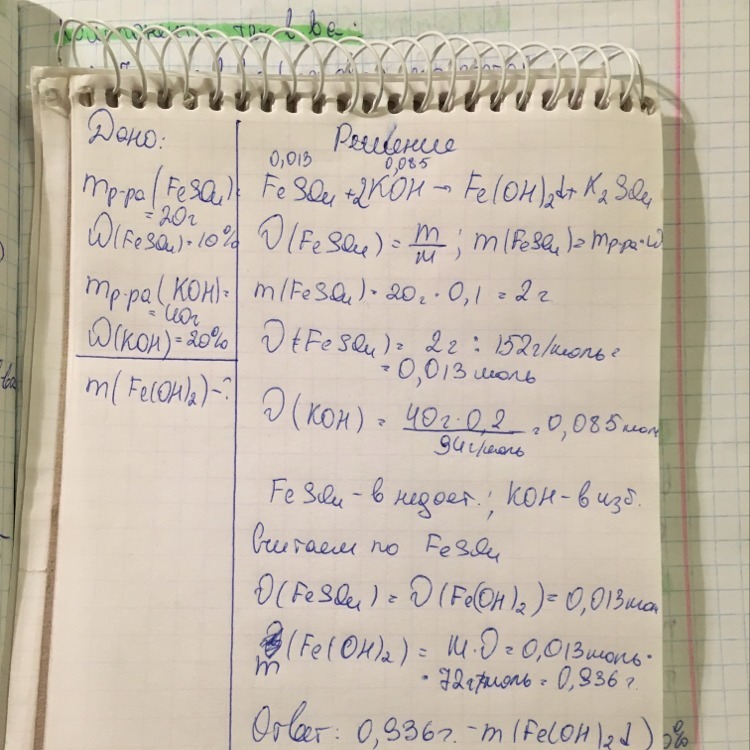 Дано:
mр-ра(FeSO4)=
=20г
ω(FeSO4)=10%
mр-ра(KOH)=
=40г
ω(KOH)=20%
m(Fe(OH)2)-?
Решение
0,013 0,085
FeSO4+2KOH → Fe(OH)2↓+K2SO4
ν(FeSO4) = m/M ; m(FeSO4)=mр-ра·ω
m(FeSO4)=20г·0,1=2г
ν(FeSO4)= 2г : 152г/моль=
=0,013 моль
ν(KOH) = 40г·0,2/94г/моль =0,085 моль
FeSO4-в недост.; KOH-в изб.
Считаем по FeSO4
ν(FeSO4)=ν(Fe(OH)2)=0,013 мол
m(Fe(OH)2)= M·ν=0,013моль·
·72г/моль=0,936 г.
Ответ: 0,936г.-m(Fe(OH)2↓)